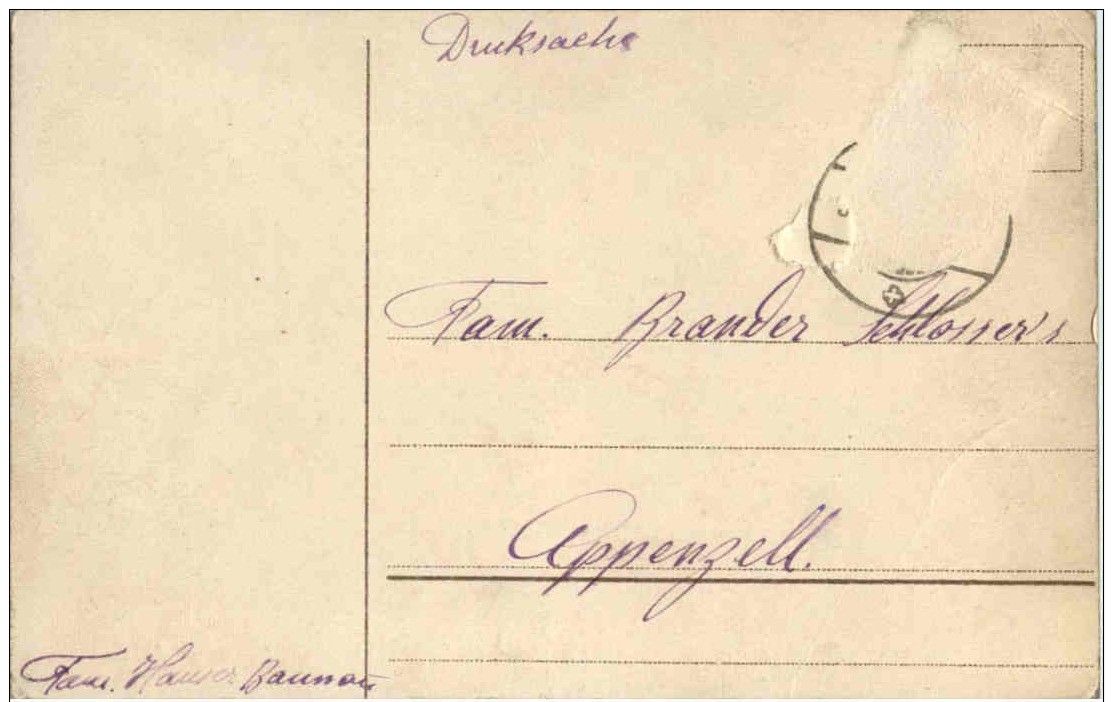 Drucksache
Fam. Brander Schlosser's
Appenzell.
Fam. Hauser